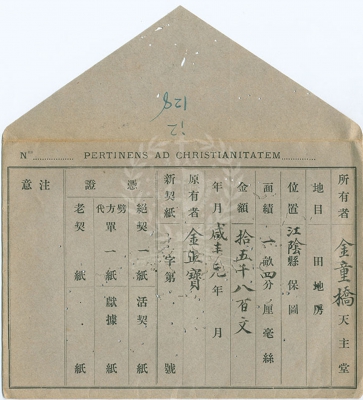 128
12
Nº PERTINENS AD CHRISTIANITATEM
所有者 金童橋 天主堂
地目 田地房
位置 江陰縣 保圖
面積 一畝四分 厘毫絲
金額 拾五千八百文
年月 咸丰元年 月
原有者 金正寶
新契紙 字第 號
憑證
絕契 一紙 活契 紙
劈方代單 一紙 獻據 紙
老契 紙 紙
注意